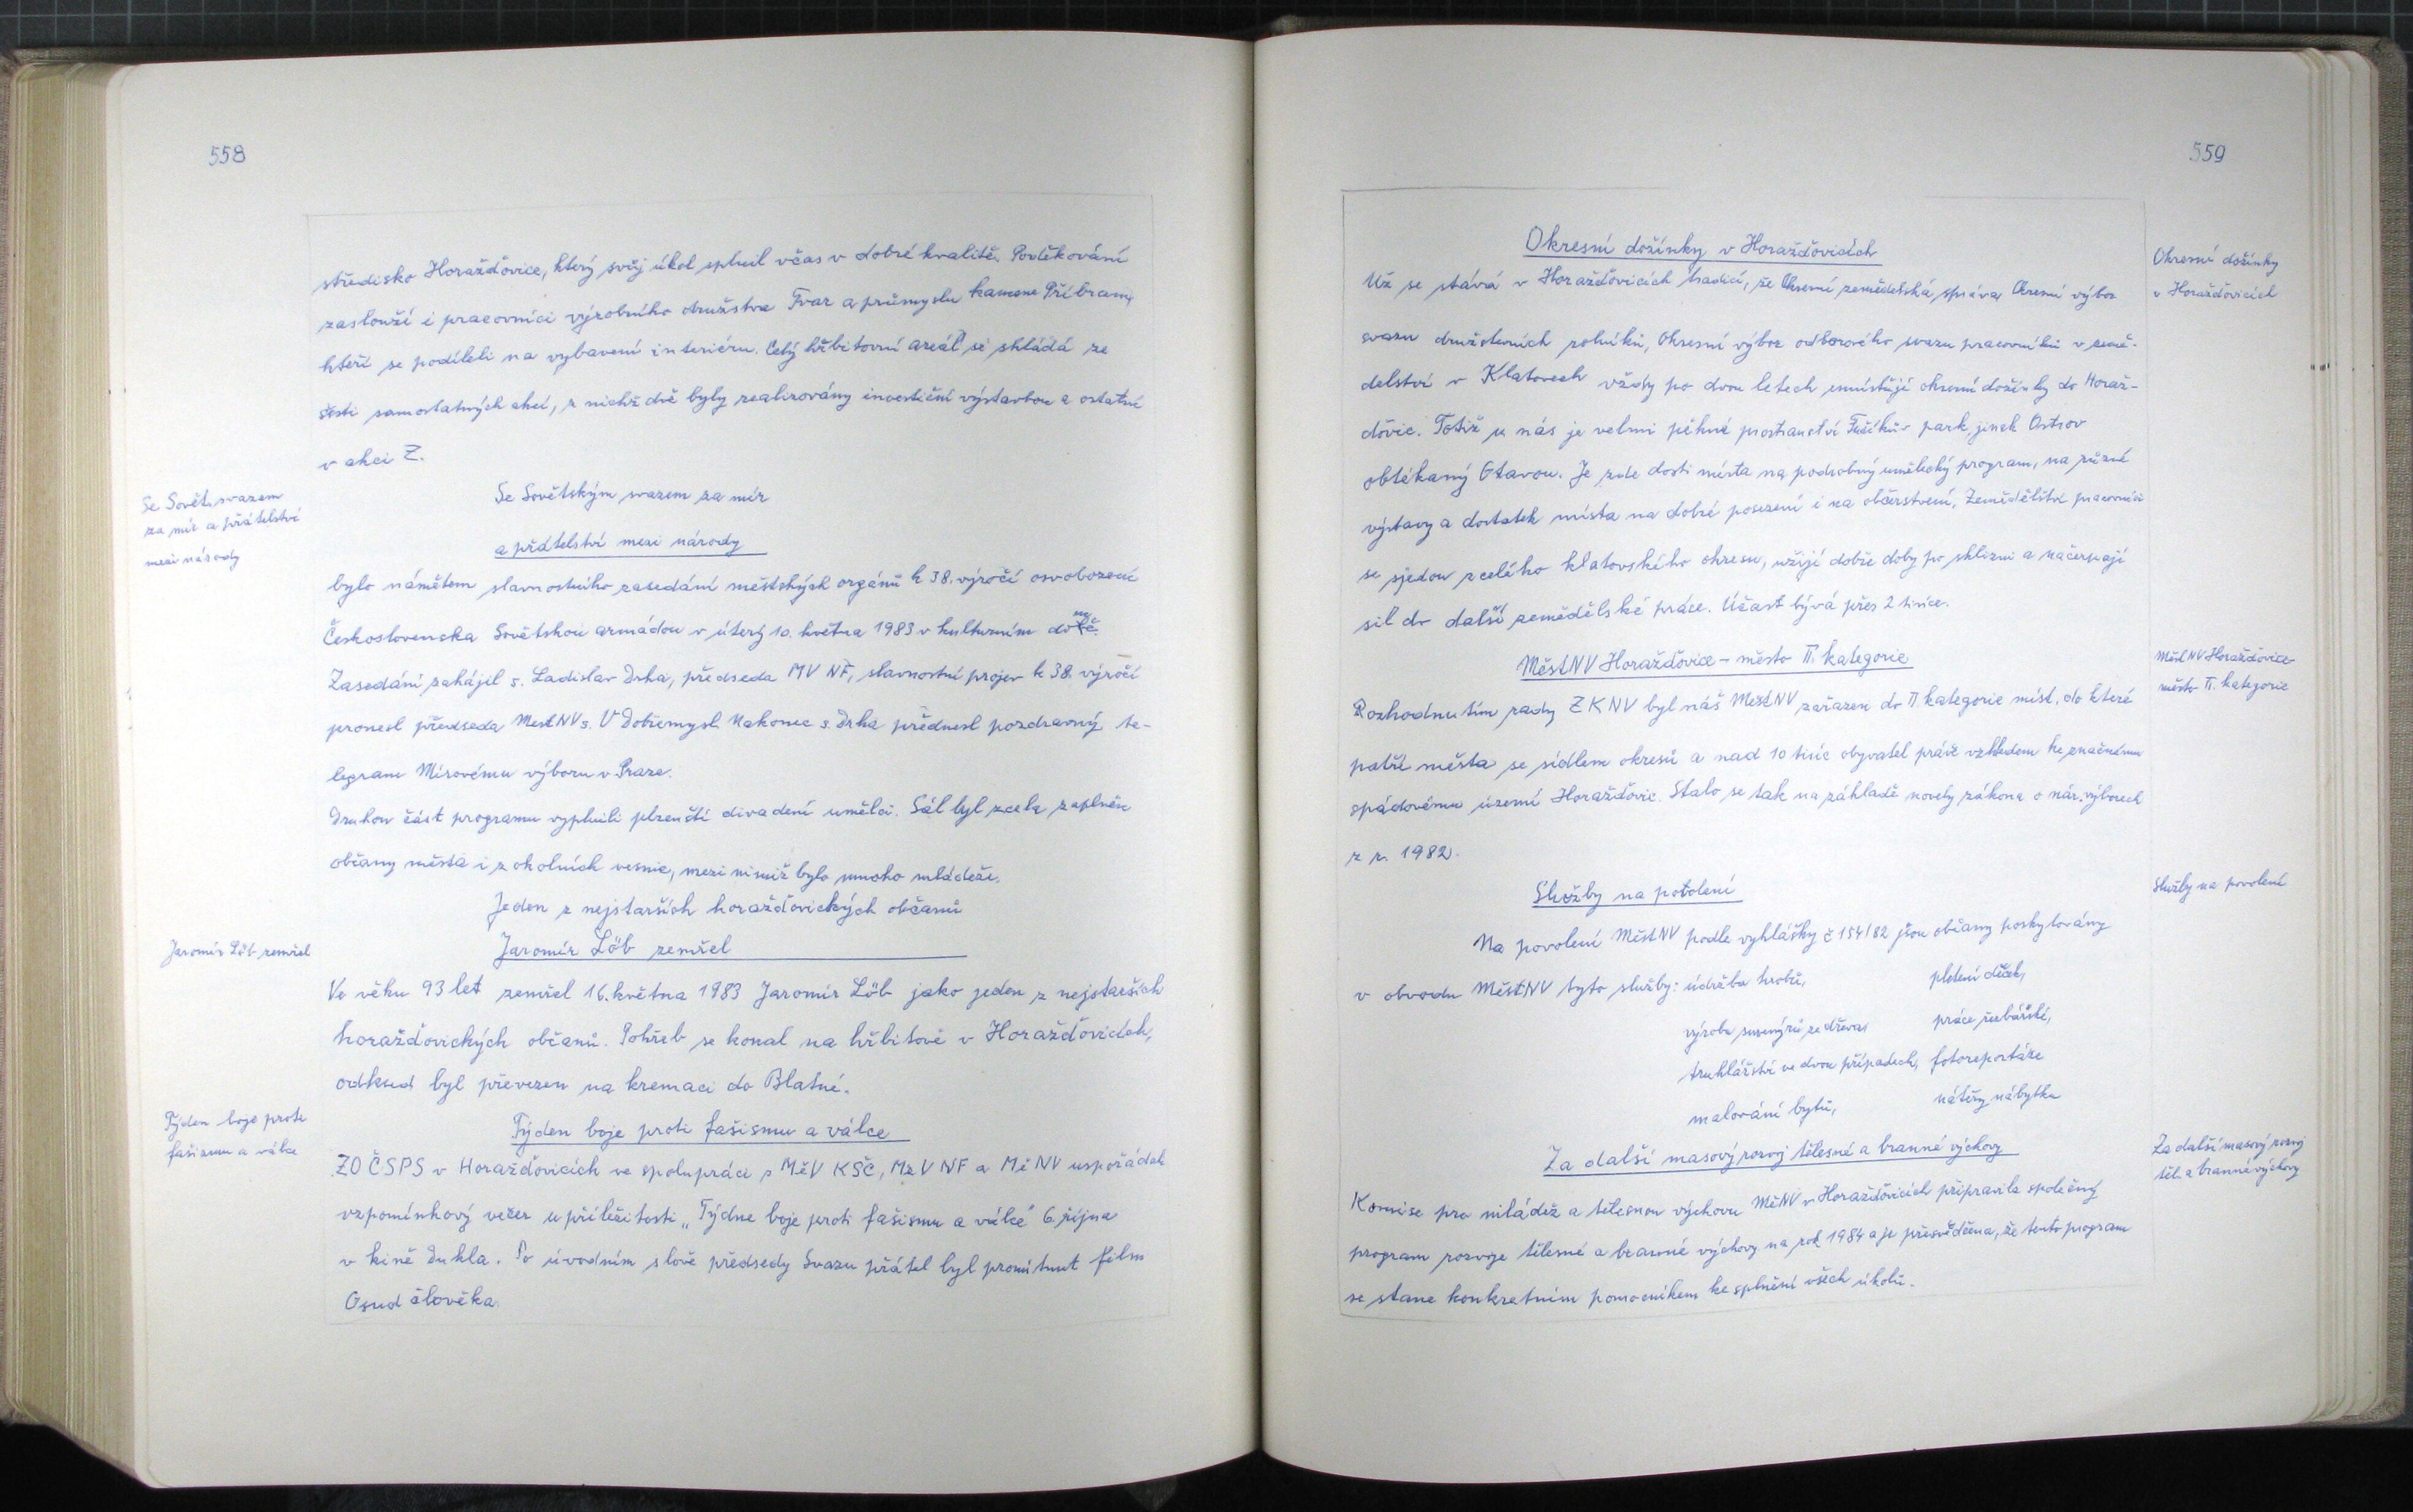 558
středisko Horažďovice, který svůj úkol splnil včas v dobré kvalitě. Poděkování
zaslouží i pracovníci výrobního družstva Tvar a průmyslu kamene Příbram,
kteří se podíleli na vybavení interiéru. Celý hřbitovní areál se skládá ze
šesti samostatných akcí, z nichž dvě byly realizovány investiční výstavbou a ostatní
v akci Z.
Se Sovět. svazem
za mír a přátelství
mezi národy
Se Sovětským svazem za mír
a přátelství mezi národy
bylo námětem slavnostního zasedání městských orgánů k 38. výročí osvobození
Československa Sovětskou armádou v úterý 10. května 1983 v kulturním domě.
Zasedání zahájil s. Ladislav Drha, předseda MV NF, slavnostní projev k 38. výročí
pronesl předseda MěstNV s. V Dobřemysl. Nakonec s. Drha přednesl pozdravný te-
legram Mírovému výboru v Praze.
Druhou část programu vyplnili plzenští divadení umělci. Sál byl zcela zaplněn
občany města i z okolních vesnic, mezi nimiž bylo mnoho mládeže.
Jaromír Löb zemřel
Jeden z nejstarších horažďovických občanů
Jaromír Löb zemřel
Ve věku 93 let zemřel 16. května 1983 Jaromír Löb jako jeden z nejstarších
horažďovických občanů. Pohřeb se konal na hřbitově v Horažďovicích,
odkud byl převezen na kremaci do Blatné.
Týden boje proti
fašismu a válce
Týden boje proti fašismu a válce
ZO ČSPS v Horažďovicích ve spolupráci s MěV KSČ, MěV NF a MěNV uspořádal
vzpomínkový večer u příležitosti „Týdne boje proti fašismu a válce" 6. října
v kině Dukla. Po úvodním slově předsedy Svazu přátel byl promítnut film
Osud člověka.
559
Okresní dožínky v Horažďovicích
Okresní dožínky
v Horažďovicích
Už se stává v Horažďovicích tradicí, že Okresní zemědělská správa, Okresní výbor
svazu družstevních rolníků, Okresní výbor odborového svazu pracovníků v země-
dělství v Klatovech vždy po dvou letech umísťují okresní dožínky do Horaž-
ďovic. Totiž u nás je velmi pěkné prostranství Fučíkův park jinak Ostrov
obtékaný Otavou. Je zde dosti místa na podrobný umělecký program, na různé
výstavy a dostatek místa na dobré posezení i na občerstvení. Zemědělští pracovníci
se sjedou z celého klatovského okresu, užijí dobře doby po sklizni a načerpají
sil do další zemědělské práce. Účast bývá přes 2 tisíce.
MěstNV Horažďovice – město II. kategorie
MěstNV Horažďovice-
město II. kategorie
Rozhodnutím rady ZKNV byl náš MěstNV zařazen do II. kategorie míst, do které
patří města se sídlem okresů a nad 10 tisíc obyvatel práv vzhledem ke značnému
spádovému území Horažďovic. Stalo se tak na základě novely zákona o nár. výborech
z r. 1982.
Služby na povolení
Služby na povolení
Na povolení MěstNV podle vyhlášky č 154/82 jsou občany poskytovány
v obvodu MěstNV tyto služby: údržba hrobů, pletení deček,
výroba suvenýrů ze dřeva, práce řezbářské,
truhlářství ve dvou případech, fotoreportáže
malování bytů, nátěry nábytku
Za další masový rozvoj tělesné a branné výchovy
Za další masový rozvoj
těl. a branné výchovy
Komise pro mládež a tělesnou výchovu MěNV v Horažďovicích připravila společný
program rozvoje tělesné a branné výchovy na rok 1984 a je přesvědčena, že tento program
se stane konkretním pomocníkem ke splnění všech úkolů.